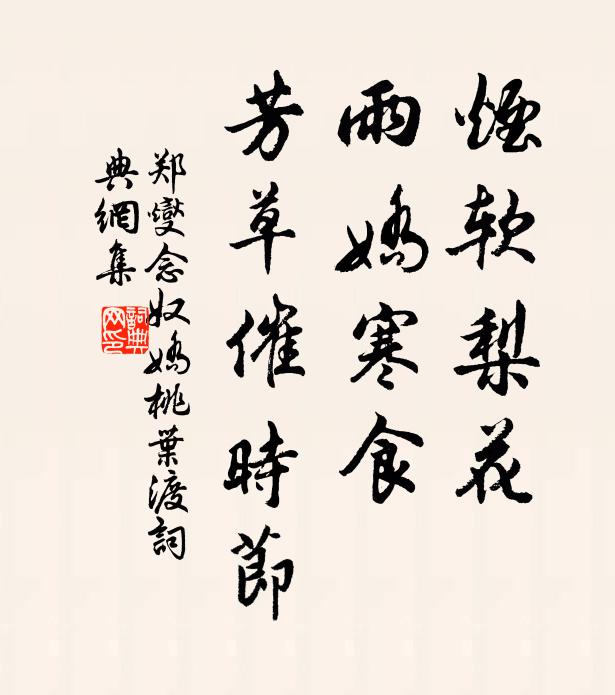 煙软梨花
雨嬌寒食
芳草催時節
郑燮念奴嬌桃葉渡詞
典網集
詞典
网印